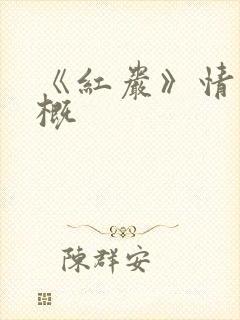 《紅巖》情
概
陳群安